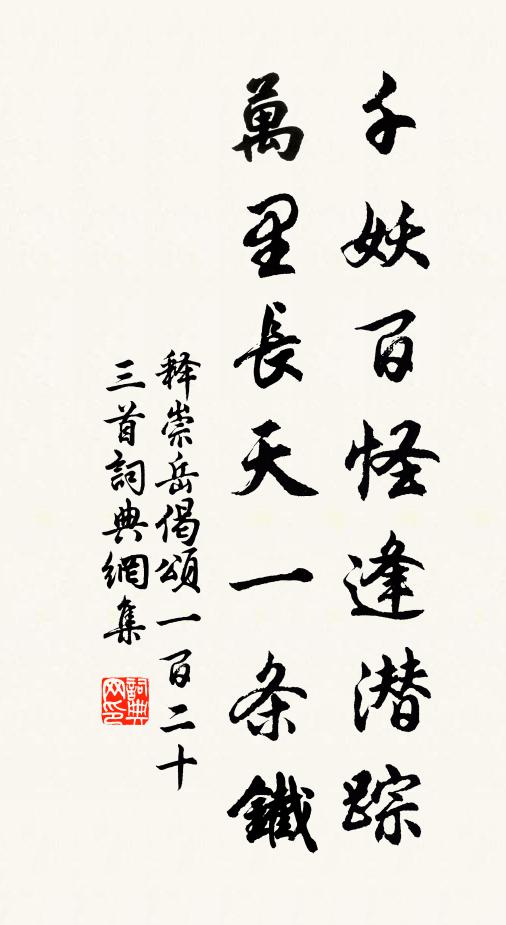 千妖百怪逢潜踪
萬里長天一条鐵
释崇岳偈頌一百二十
三首詞典網集
詞典網印